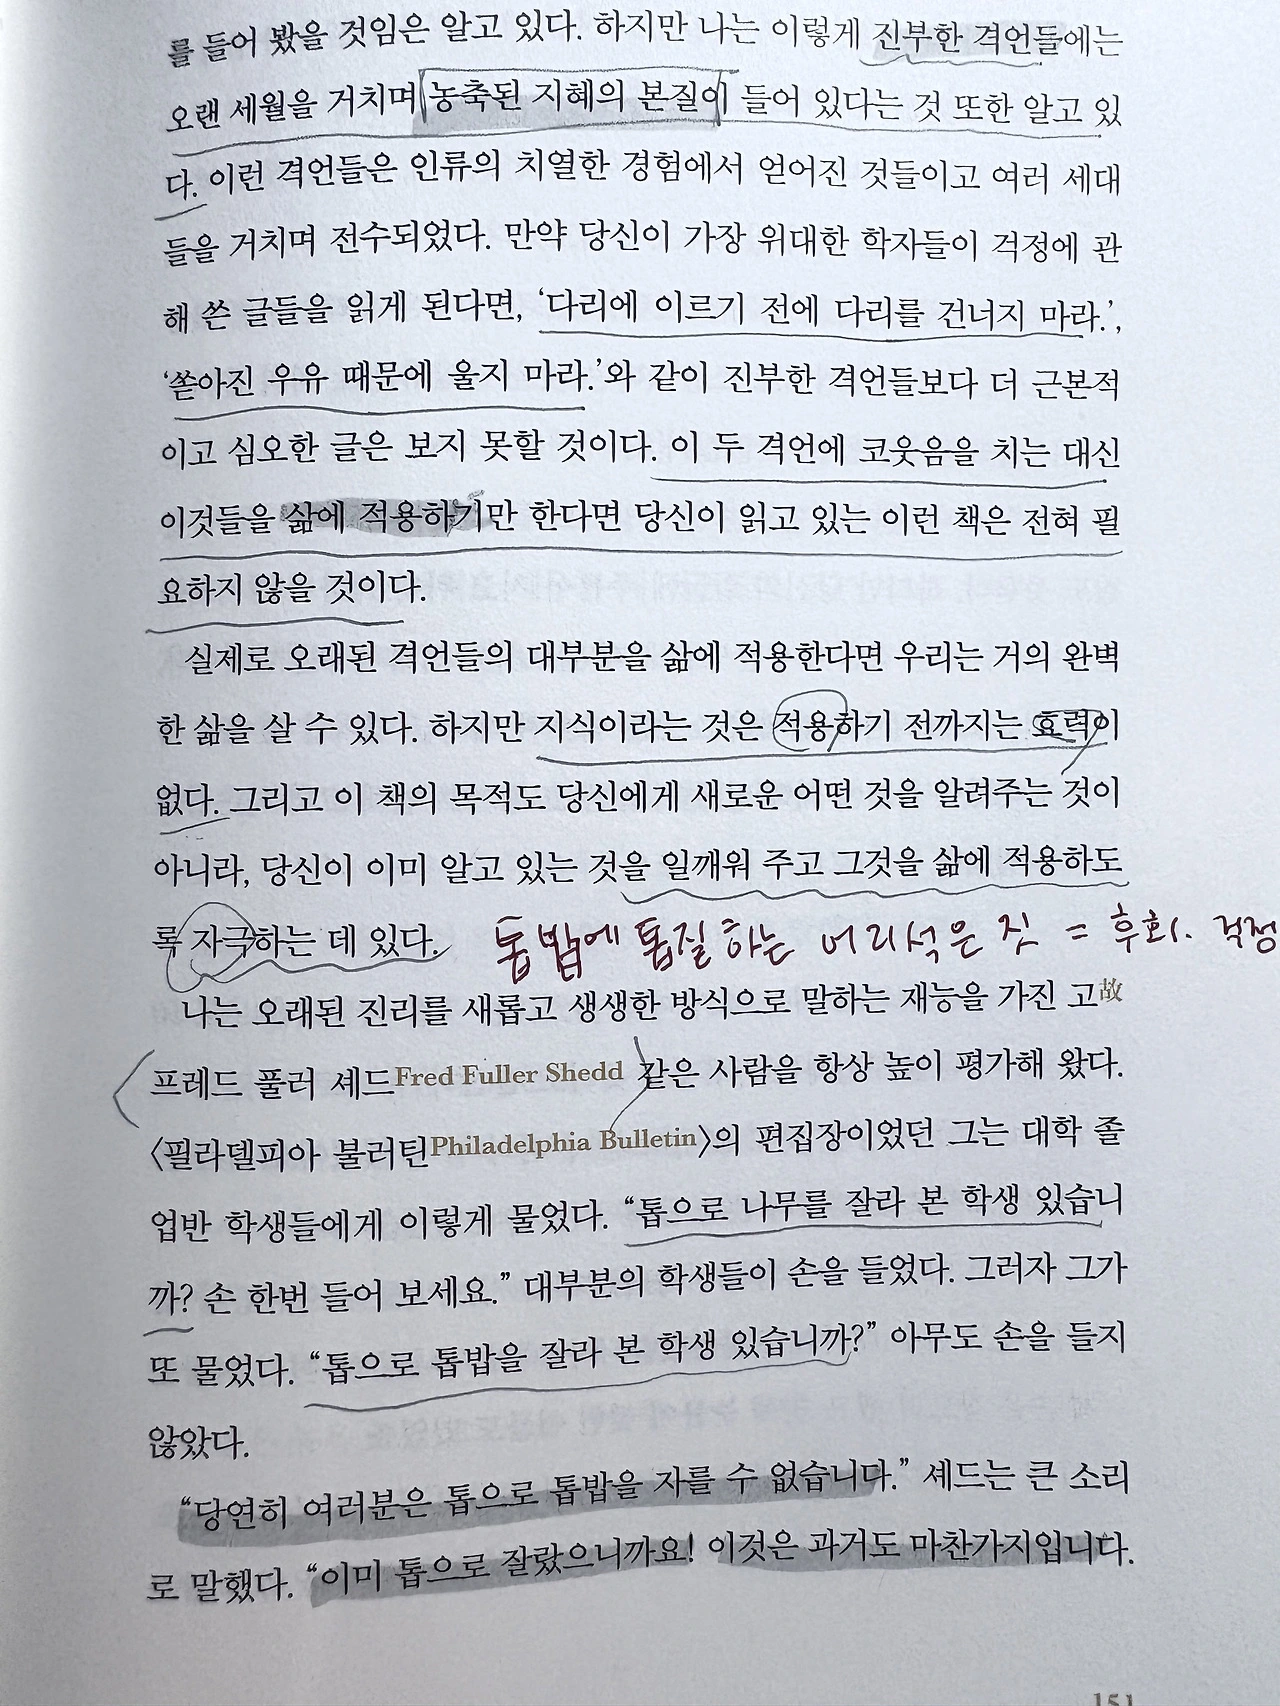 를 들어 봤을 것임은 알고 있다. 하지만 나는 이렇게 진부한 격언들에는
오랜 세월을 거치며 농축된 지혜의 본질이 들어 있다는 것 또한 알고 있
다. 이런 격언들은 인류의 치열한 경험에서 얻어진 것들이고 여러 세대
들을 거치며 전수되었다. 만약 당신이 가장 위대한 학자들이 걱정에 관
해 쓴 글들을 읽게 된다면, ‘다리에 이르기 전에 다리를 건너지 마라.’,
‘쏟아진 우유 때문에 울지 마라.’와 같이 진부한 격언들보다 더 근본적
이고 심오한 글은 보지 못할 것이다. 이 두 격언에 코웃음을 치는 대신
이것들을 삶에 적용하기만 한다면 당신이 읽고 있는 이런 책은 전혀 필
요하지 않을 것이다.
실제로 오래된 격언들의 대부분을 삶에 적용한다면 우리는 거의 완벽
한 삶을 살 수 있다. 하지만 지식이라는 것은 적용하기 전까지는 효력이
없다. 그리고 이 책의 목적도 당신에게 새로운 어떤 것을 알려주는 것이
아니라, 당신이 이미 알고 있는 것을 일깨워 주고 그것을 삶에 적용하도
록 자극하는 데 있다. 톱밥에 톱질하는 어리석은 짓 = 후회. 걱정
나는 오래된 진리를 새롭고 생생한 방식으로 말하는 재능을 가진 고故
프레드 풀러 셰드Fred Fuller Shedd 같은 사람을 항상 높이 평가해 왔다.
〈필라델피아 불러틴Philadelphia Bulletin〉의 편집장이었던 그는 대학 졸
업반 학생들에게 이렇게 물었다. “톱으로 나무를 잘라 본 학생 있습니
까? 손 한번 들어 보세요.” 대부분의 학생들이 손을 들었다. 그러자 그가
또 물었다. “톱으로 톱밥을 잘라 본 학생 있습니까?” 아무도 손을 들지
않았다.
“당연히 여러분은 톱으로 톱밥을 자를 수 없습니다.” 셰드는 큰 소리
로 말했다. “이미 톱으로 잘랐으니까요! 이것은 과거도 마찬가지입니다.
151